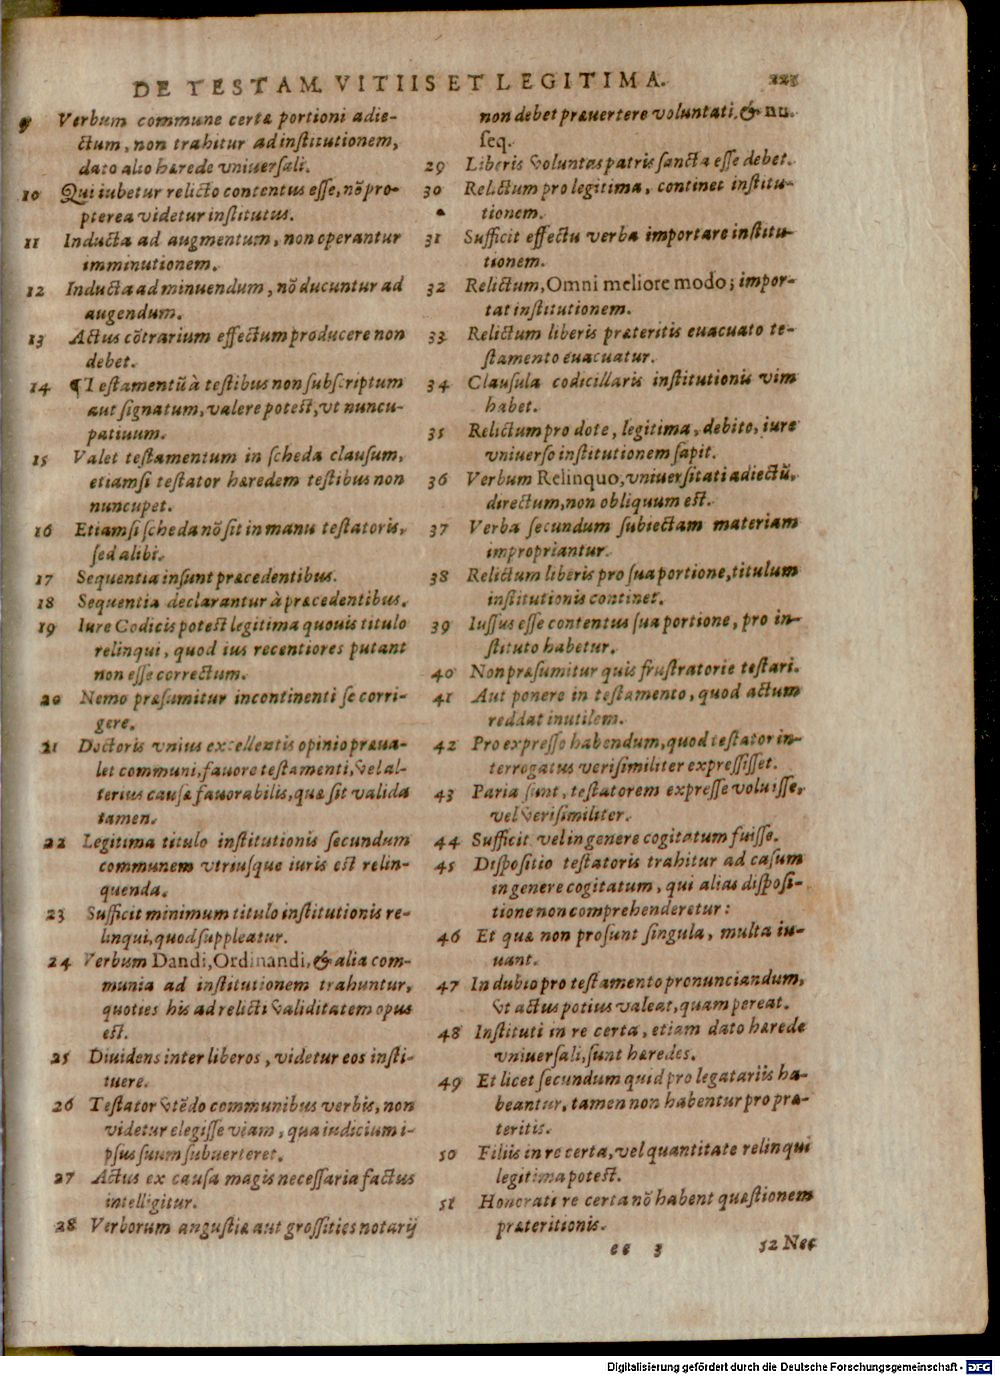 DE TESTAM. VITIIS ET LEGITIMA.
9 Verbum commune certæ portioni adie-
ctum, non trahitur ad institutionem,
dato alio hærede vniuersali.
10 Qui iubetur relicto contentus esse, nõ pro-
pterea videtur institutus.
11 Inducta ad augmentum, non operantur
imminutionem.
12 Inducta ad minuendum, nõ ducuntur ad
augendum.
13 Actus cõtrarium effectum producere non
debet.
14 ¶ Testamentũ à testibus non subscriptum
aut signatum, valere potest, vt nuncu-
patiuum.
15 Valet testamentum in scheda clausum,
etiamsi testator hæredem testibus non
nuncupet.
16 Etiamsi scheda nõ sit in manu testatoris,
sed alibi.
17 Sequentia insunt præcedentibus.
18 Sequentia declarantur à præcedentibus.
19 Iure Codicis potest legitima quouis titulo
relinqui, quod ius recentiores putant
non esse correctum.
20 Nemo præsumitur incontinenti se corri-
gere.
21 Doctoris vnius excellentis opinio præua-
let communi, fauore testamenti, vel al-
terius causæ fauorabilis, quæ sit valida
tamen.
22 Legitima titulo institutionis secundum
communem vtriusque iuris est relin-
quenda.
23 Sufficit minimum titulo institutionis re-
linqui, quod suppleatur.
24 Verbum Dandi, Ordinandi, & alia com-
munia ad institutionem trahuntur,
quoties his ad relicti validitatem opus
est.
25 Diuidens inter liberos, videtur eos insti-
tuere.
26 Testator vtẽdo communibus verbis, non
videtur elegisse viam, qua iudicium i-
psus suum subuerteret.
27 Actus ex causa magis necessaria factus
intelligitur.
28 Verborum angustiæ aut grossities notarij
non debet præuertere voluntati, & nu.
seq.
29 Liberis voluntas patris sancta esse debet.
30 Relictum pro legitima, continet institu-
tionem.
31 Sufficit effectu verba importare institu-
tionem.
32 Relictum, Omni meliore modo; impor-
tat institutionem.
33 Relictum liberis præteritis euacuato te-
stamento euacuatur.
34 Clausula codicillaris institutionis vim
habet.
35 Relictum pro dote, legitima, debito, iure
vniuerso institutionem sapit.
36 Verbum Relinquo, vniuersitati adiectũ,
directum, non obliquum est.
37 Verba secundum subiectam materiam
impropriantur.
38 Relictum liberis pro sua portione, titulum
institutionis continet.
39 Iussus esse contentus sua portione, pro in-
stituto habetur.
40 Non præsumitur quis frustratorie testari.
41 Aut ponere in testamento, quod actum
reddat inutilem.
42 Pro expresso habendum, quod testator in-
terrogatus verisimiliter expressisset.
43 Paria sunt, testatorem expresse voluisse,
vel verisimiliter.
44 Sufficit vel in genere cogitatum fuisse.
45 Dispositio testatoris trahitur ad casum
in genere cogitatum, qui alias disposi-
tione non comprehenderetur:
46 Et quæ non prosunt singula, multa iu-
uant.
47 In dubio pro testamento pronunciandum,
vt actus potius valeat, quam pereat.
48 Instituti in re certa, etiam dato hærede
vniuersali, sunt hæredes.
49 Et licet secundum quid pro legatariis ha-
beantur, tamen non habentur pro præ-
teritis.
50 Filiis in re certa, vel quantitate relinqui
legitima potest.
51 Honorati re certa nõ habent quæstionem
præteritionis.
ee 3 52 Nec
Digitalisierung gefördert durch die Deutsche Forschungsgemeinschaft - DFG